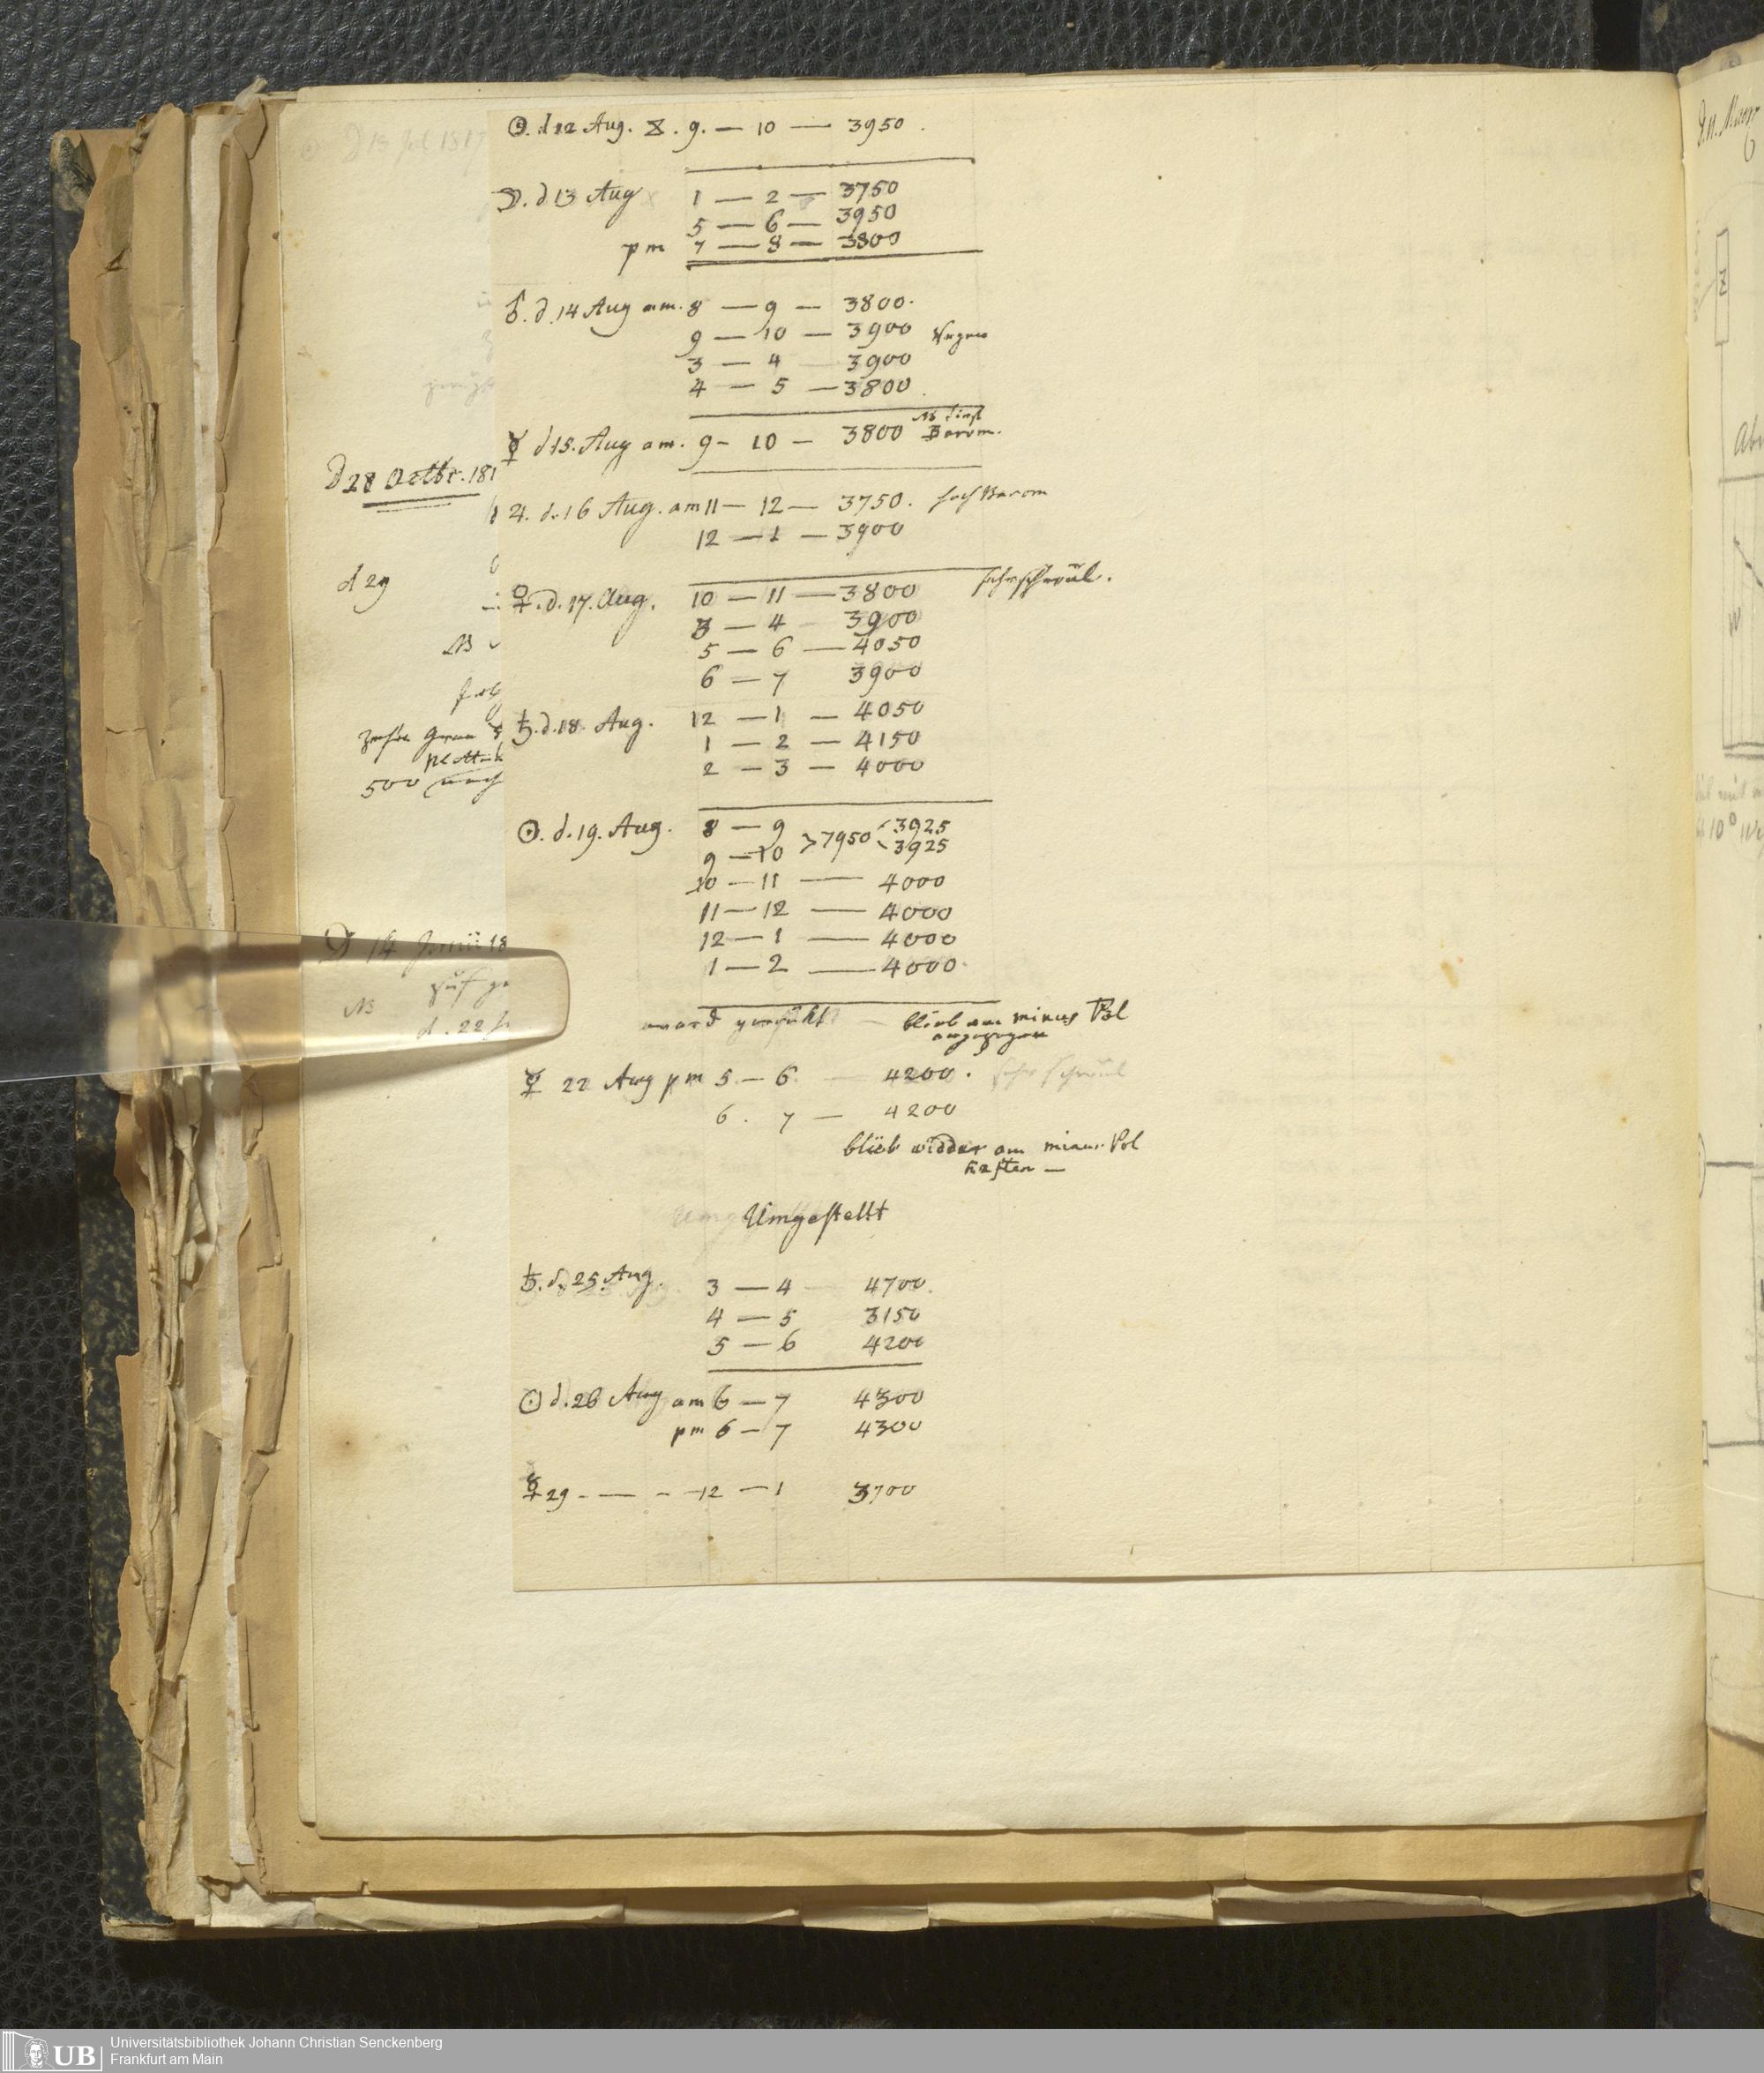 ☉. d 12 Aug. 8. 9. — 10 — 3950.
☽. d 13 Aug 1 — 2 — 3750
5 — 6 — 3950
pm 7 — 8 — 3800
♂. d. 14 Aug am. 8 — 9 — 3800.
9 — 10 — 3900
3 — 4 3900
4 — 5 — 3800
☿ d 15. Aug am. 9 - 10 — 3800 Barom.
♃. d. 16 Aug. am 11 — 12 — 3750. Barom
12 — 1 — 3900
♀. d. 17. Aug. 10 — 11 — 3800 sehr schwül.
3 — 4 3900
5 — 6 — 4050
6 — 7 3900
♄. d. 18. Aug. 12 — 1 — 4050
1 — 2 — 4150
2 — 3 — 4000
☉. d. 19. Aug. 8 — 9 3925
9 — 10 > 7950 < 3925
10 — 11 — 4000
11 — 12 — 4000
12 — 1 — 4000
1 — 2 — 4000
blieb am minus Pol
☿ 22 Aug pm 5 — 6 4200. sehr schwül
6. 7 — 4200
blieb widder am minus Pol
haften —
Umgestellt
♄. d. 25. Aug. 3 — 4 4700.
4 — 5 3150
5 — 6 4200
☉ d. 26 Aug am 6 — 7 4300
pm 6 — 7 4300
☿ 29 - — - 12 — 1 3700
d 13 Jul 1817
d 28 Octbr. 181
d 29
NB
500
14 Junii 18
NB
d. 22
Abw
10°
Universitätsbibliothek Johann Christian Senckenberg
Frankfurt am Main
UB